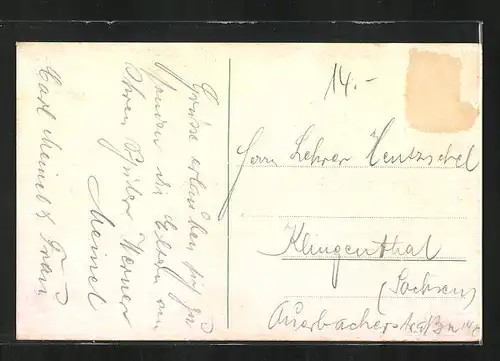 Grüße erlauben sich zu
senden die Eltern von
Ihrem Schüler Werner
Meinel
Karl Meinel & Frau
14.-
Herrn Lehrer Hentzschel
Klingenthal
(Sachsen)
Auerbacherstr.